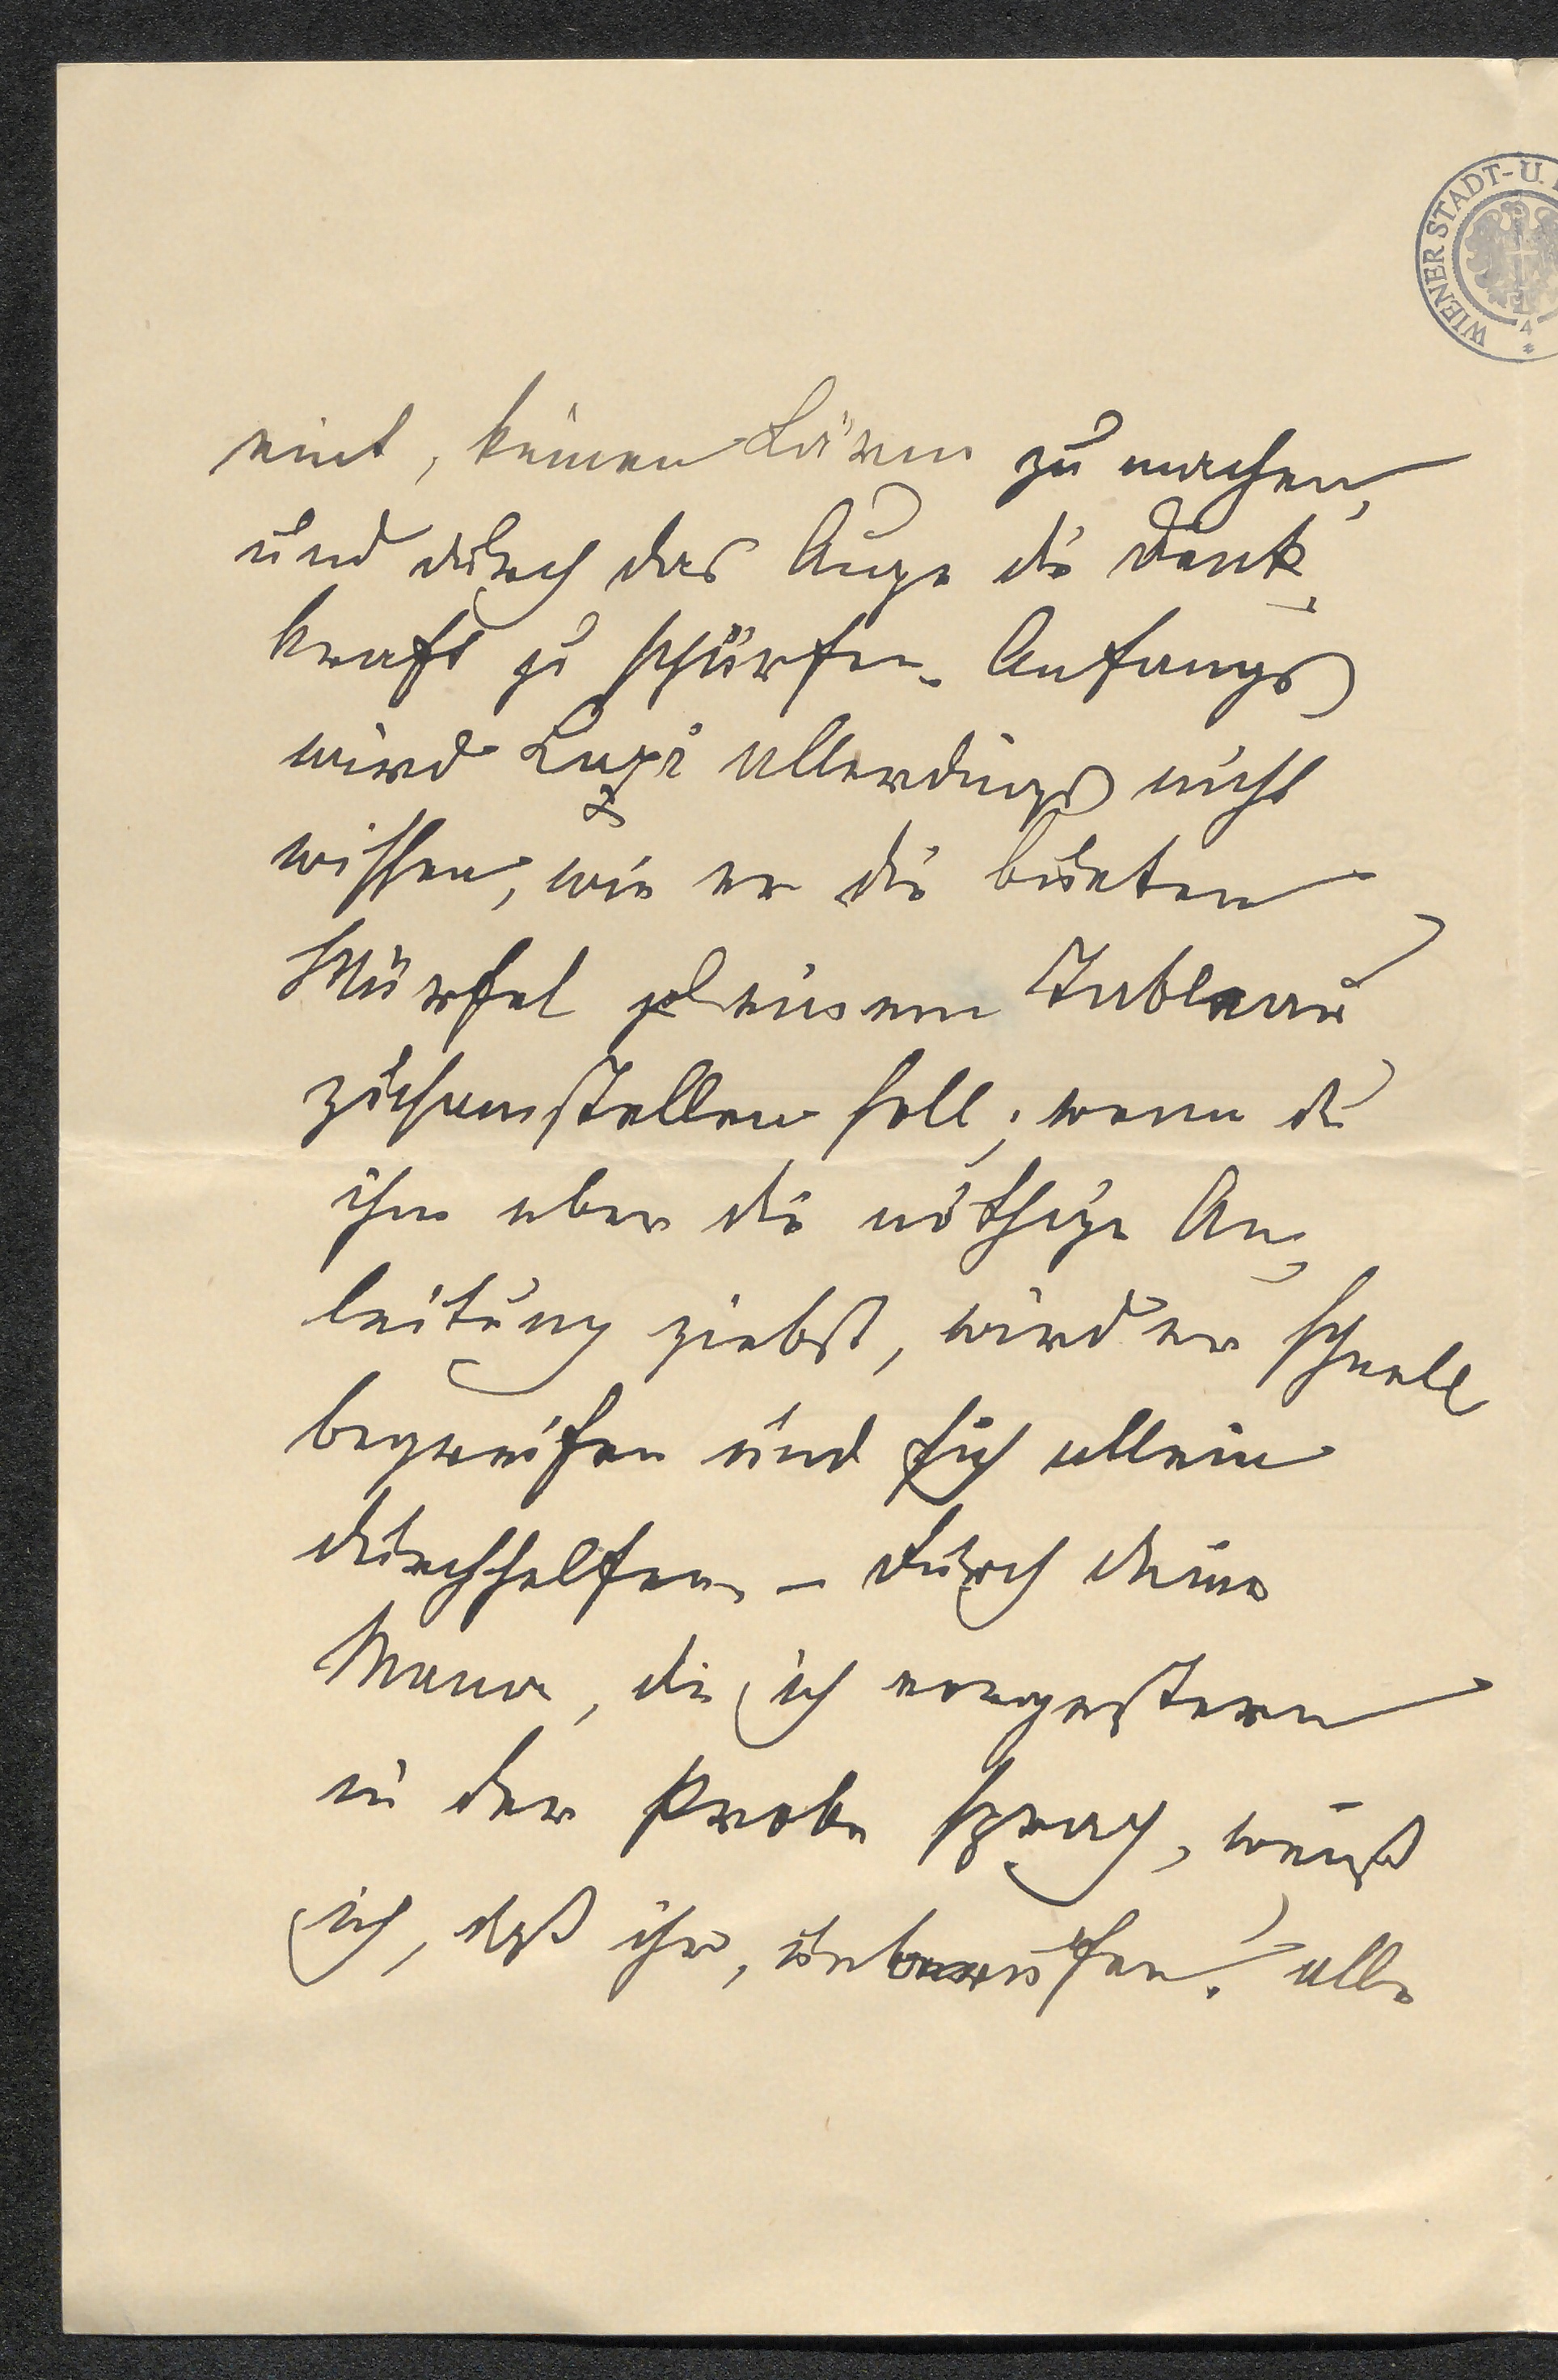 WIENER STADT-U.
eint, keinen Lärm zu machen,
und durch das Auge die Denk-
kraft zu schärfen. Anfangs
wird Luzi allerdings nicht
wissen, wie er die bunten
Würfel zu einem Tableau
zusamstellen soll; wenn du
ihm aber die nöthige An-
leitung giebst, wird er schnell
begreifen und sich allein
durchhelfen. – Durch deine
Mama, die ich vorgestern
in der Probe sprach, weiß
ich, daß ihr, unberufen! alle